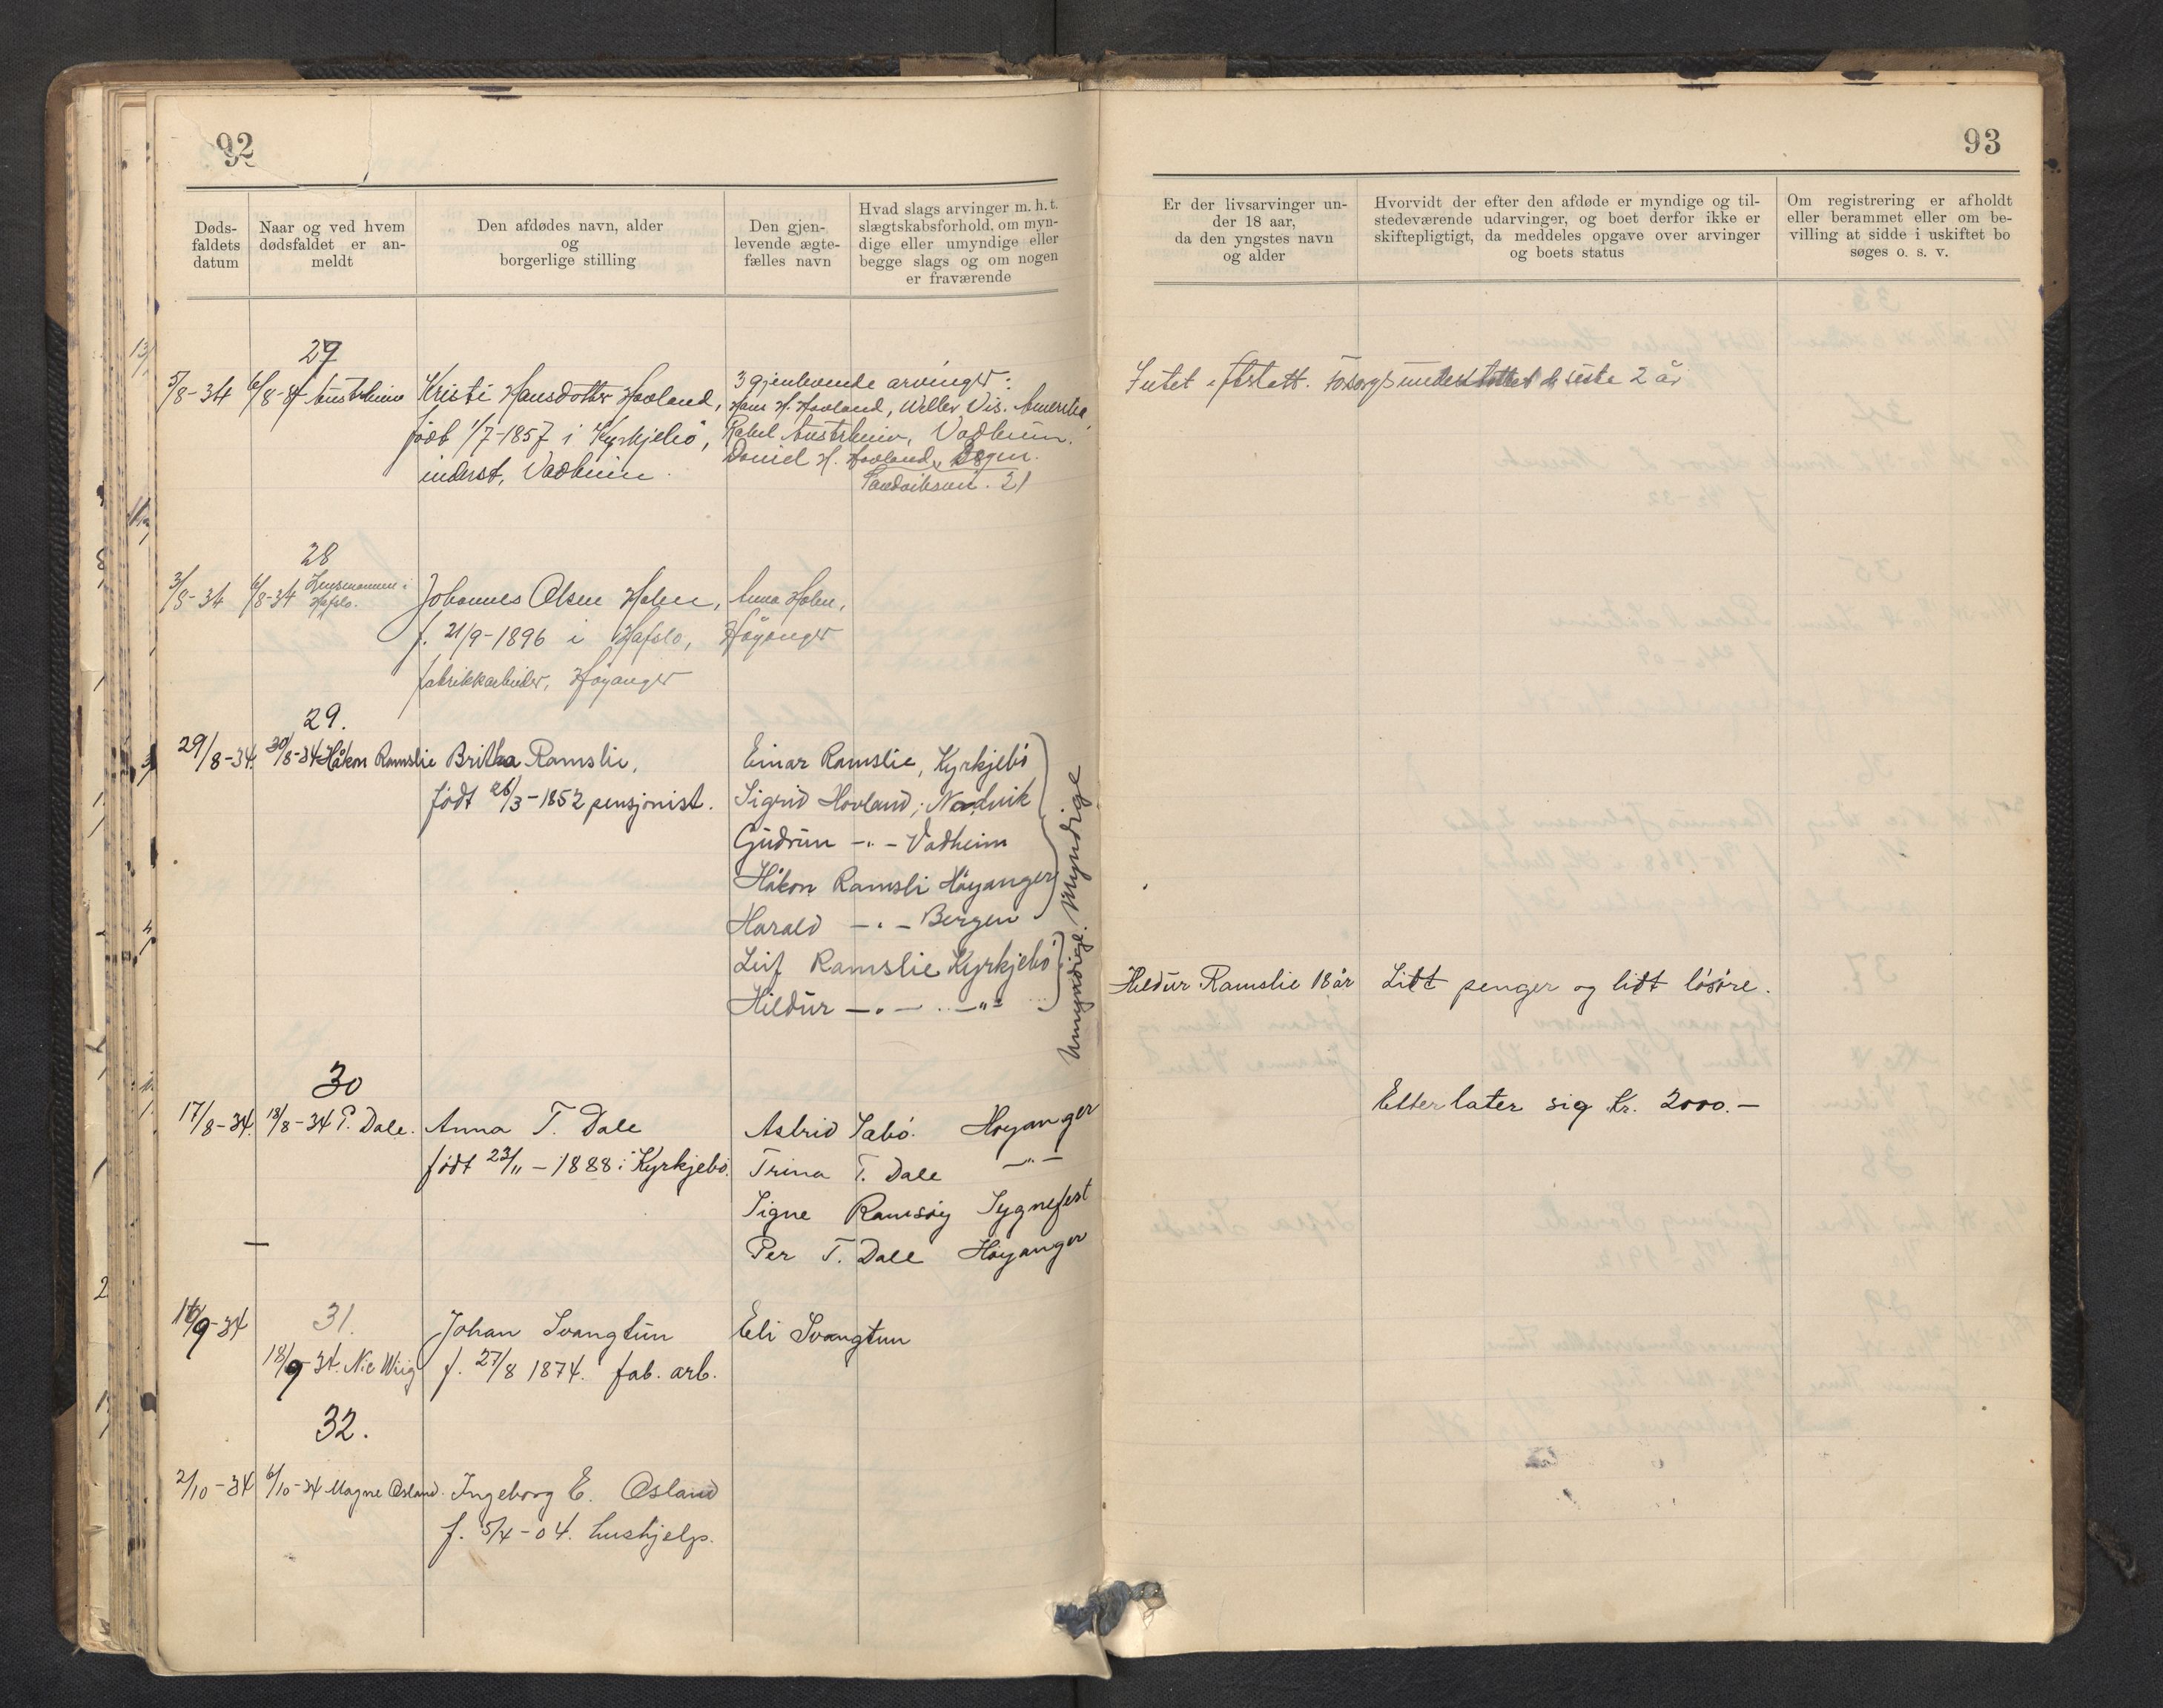 92
Døds-
faldets
datum
Naar og ved hvem
dødsfaldet er an-
meldt
Den afdødes navn, alder
og
borgerlige stilling
Den gjen-
levende ægte-
fælles navn
Hvad slags arvinger m. h. t.
slægtskabsforhold, om myn-
dige eller umyndige eller
begge slags og om nogen
er fraværende
27
5/8-34 6/8-34 Austrheim Kristi Hansdotter Hovland, 3 gjenlevende arvinger:
Hans H. Hovland, Weller Vis. Amerika,
født 1/7-1857 i Kyrkjebø, Rakel Austrheim, Vadheim.
Daniel H. Hovland,
inderst, Vadheim.
Sandviksvei. 21
28
3/8-34 6/8-34 Lensmannen i
Hafslo.
Johannes Olsen Holen, Anna Holen,
f. 21/9-1896 i Hafslo, Høyanger
fabrikkarbeider, Høyanger
29.
29/8-34. 30/8-34 Håkon Ramslie Britha Ramsli, Einar Ramslie, Kyrkjebö
født 26/3-1852 pensjonist. Sigrid Hovland, Nordvik
Gudrun -"- Vadheim
Håkon Ramsli Höyanger
Harald -"- Bergen
Myndige
Leif Ramslie Kyrkjebö
Hildur -"- -"-
Umyndige.
30
17/8-34. 18/8-34 P. Dale. Anna T. Dale Astrid Sabö. Høyanger
født 23/11-1888 i Kyrkjebö. Trina T. Dale -"-
Signe Ramsøy Sygnefest
Per T. Dale Høyanger
31.
16/9-34 Johan Svangtun Eli Svangtun
18/9-34. Nic Wiig f. 27/8 1874. fab. arb.
32.
2/10-34 6/10-34 Magne Osland. Ingeborg E. Osland
f. 5/4-04. hushjelp.
93
Er der livsarvinger un-
der 18 aar,
da den yngstes navn
og alder
Hvorvidt der efter den afdøde er myndige og til-
stedeværende udarvinger, og boet derfor ikke er
skiftepligtigt, da meddeles opgave over arvinger
og boets status
Om registrering er afholdt
eller berammet eller om be-
villing at sidde i uskiftet bo
søges o. s. v.
Intet efterlatt. Forsorgsunderstøttet de siste 2 år
Hildur Ramslie 18 år Litt penger og litt lösöre.
Etterlater sig Kr. 2000.-